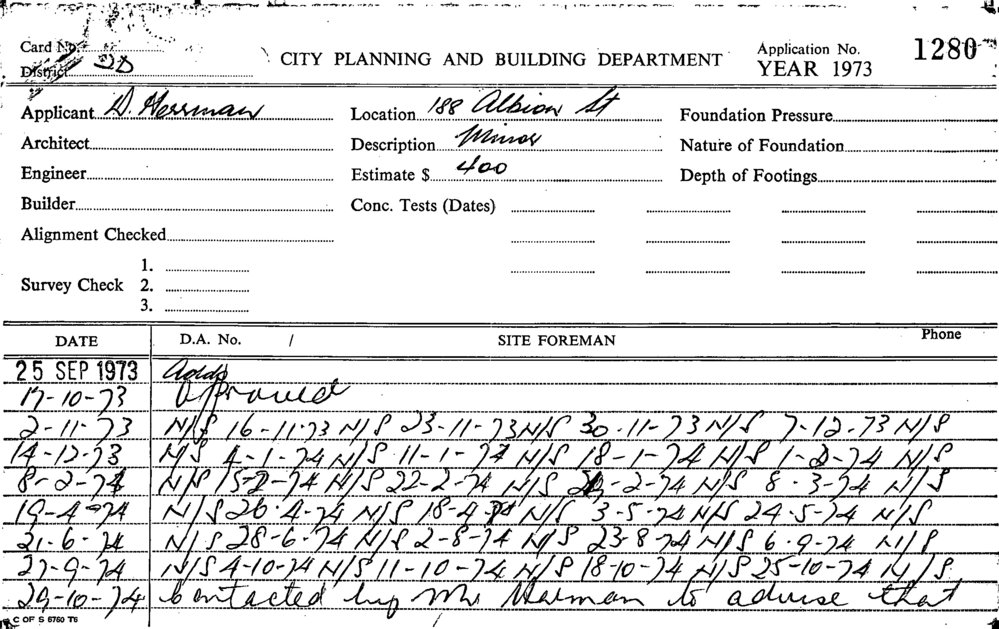 Card No.
District 2D
CITY PLANNING AND BUILDING DEPARTMENT
Application No. 1280
YEAR 1973
Applicant D. Herrman Location 188 Albion St Foundation Pressure
Architect Description Minor Nature of Foundation
Engineer Estimate $ 400 Depth of Footings
Builder Conc. Tests (Dates)
Alignment Checked
1.
Survey Check 2.
3.
DATE D.A. No. / SITE FOREMAN Phone
25 SEP 1973 Adds
17-10-73 Approved
2-11-73 N/S 16-11-73 N/S 23-11-73 N/S 30-11-73 N/S 7-12-73 N/S
14-12-73 N/S 4-1-74 N/S 11-1-74 N/S 18-1-74 N/S 1-2-74 N/S
8-2-74 N/S 15-2-74 N/S 22-2-74 N/S -2-74 N/S 8-3-74 N/S
19-4-74 N/S 26-4-74 N/S 18-4-74 N/S 3-5-74 N/S 24-5-74 N/S
21-6-74 N/S 28-6-74 N/S 2-8-74 N/S 23-8-74 N/S 6-9-74 N/S
27-9-74 N/S 4-10-74 N/S 11-10-74 N/S 18-10-74 N/S 25-10-74 N/S
29-10-74 Contacted by Mr Harman to advise that
C OF S 6760 T6